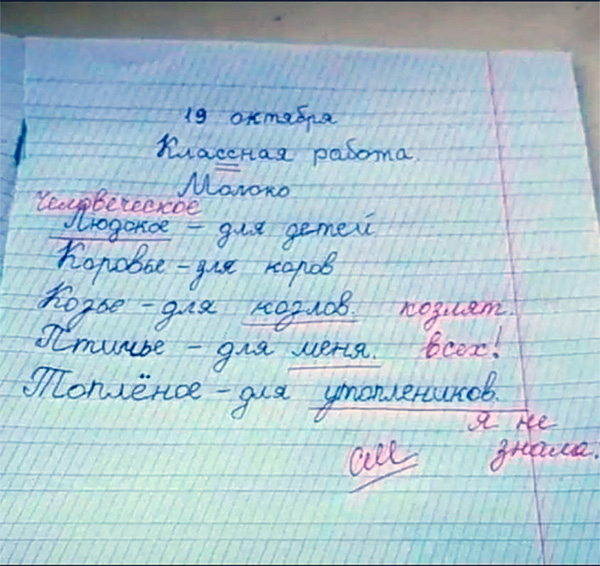 19 октября
Классная работа.
Молоко
Человеческое
Людское - для детей
Коровье - для коров
Козье - для козлов. козлят.
Птичье - для меня. всех!
Топлёное - для утоплеников.
я не
см знала.